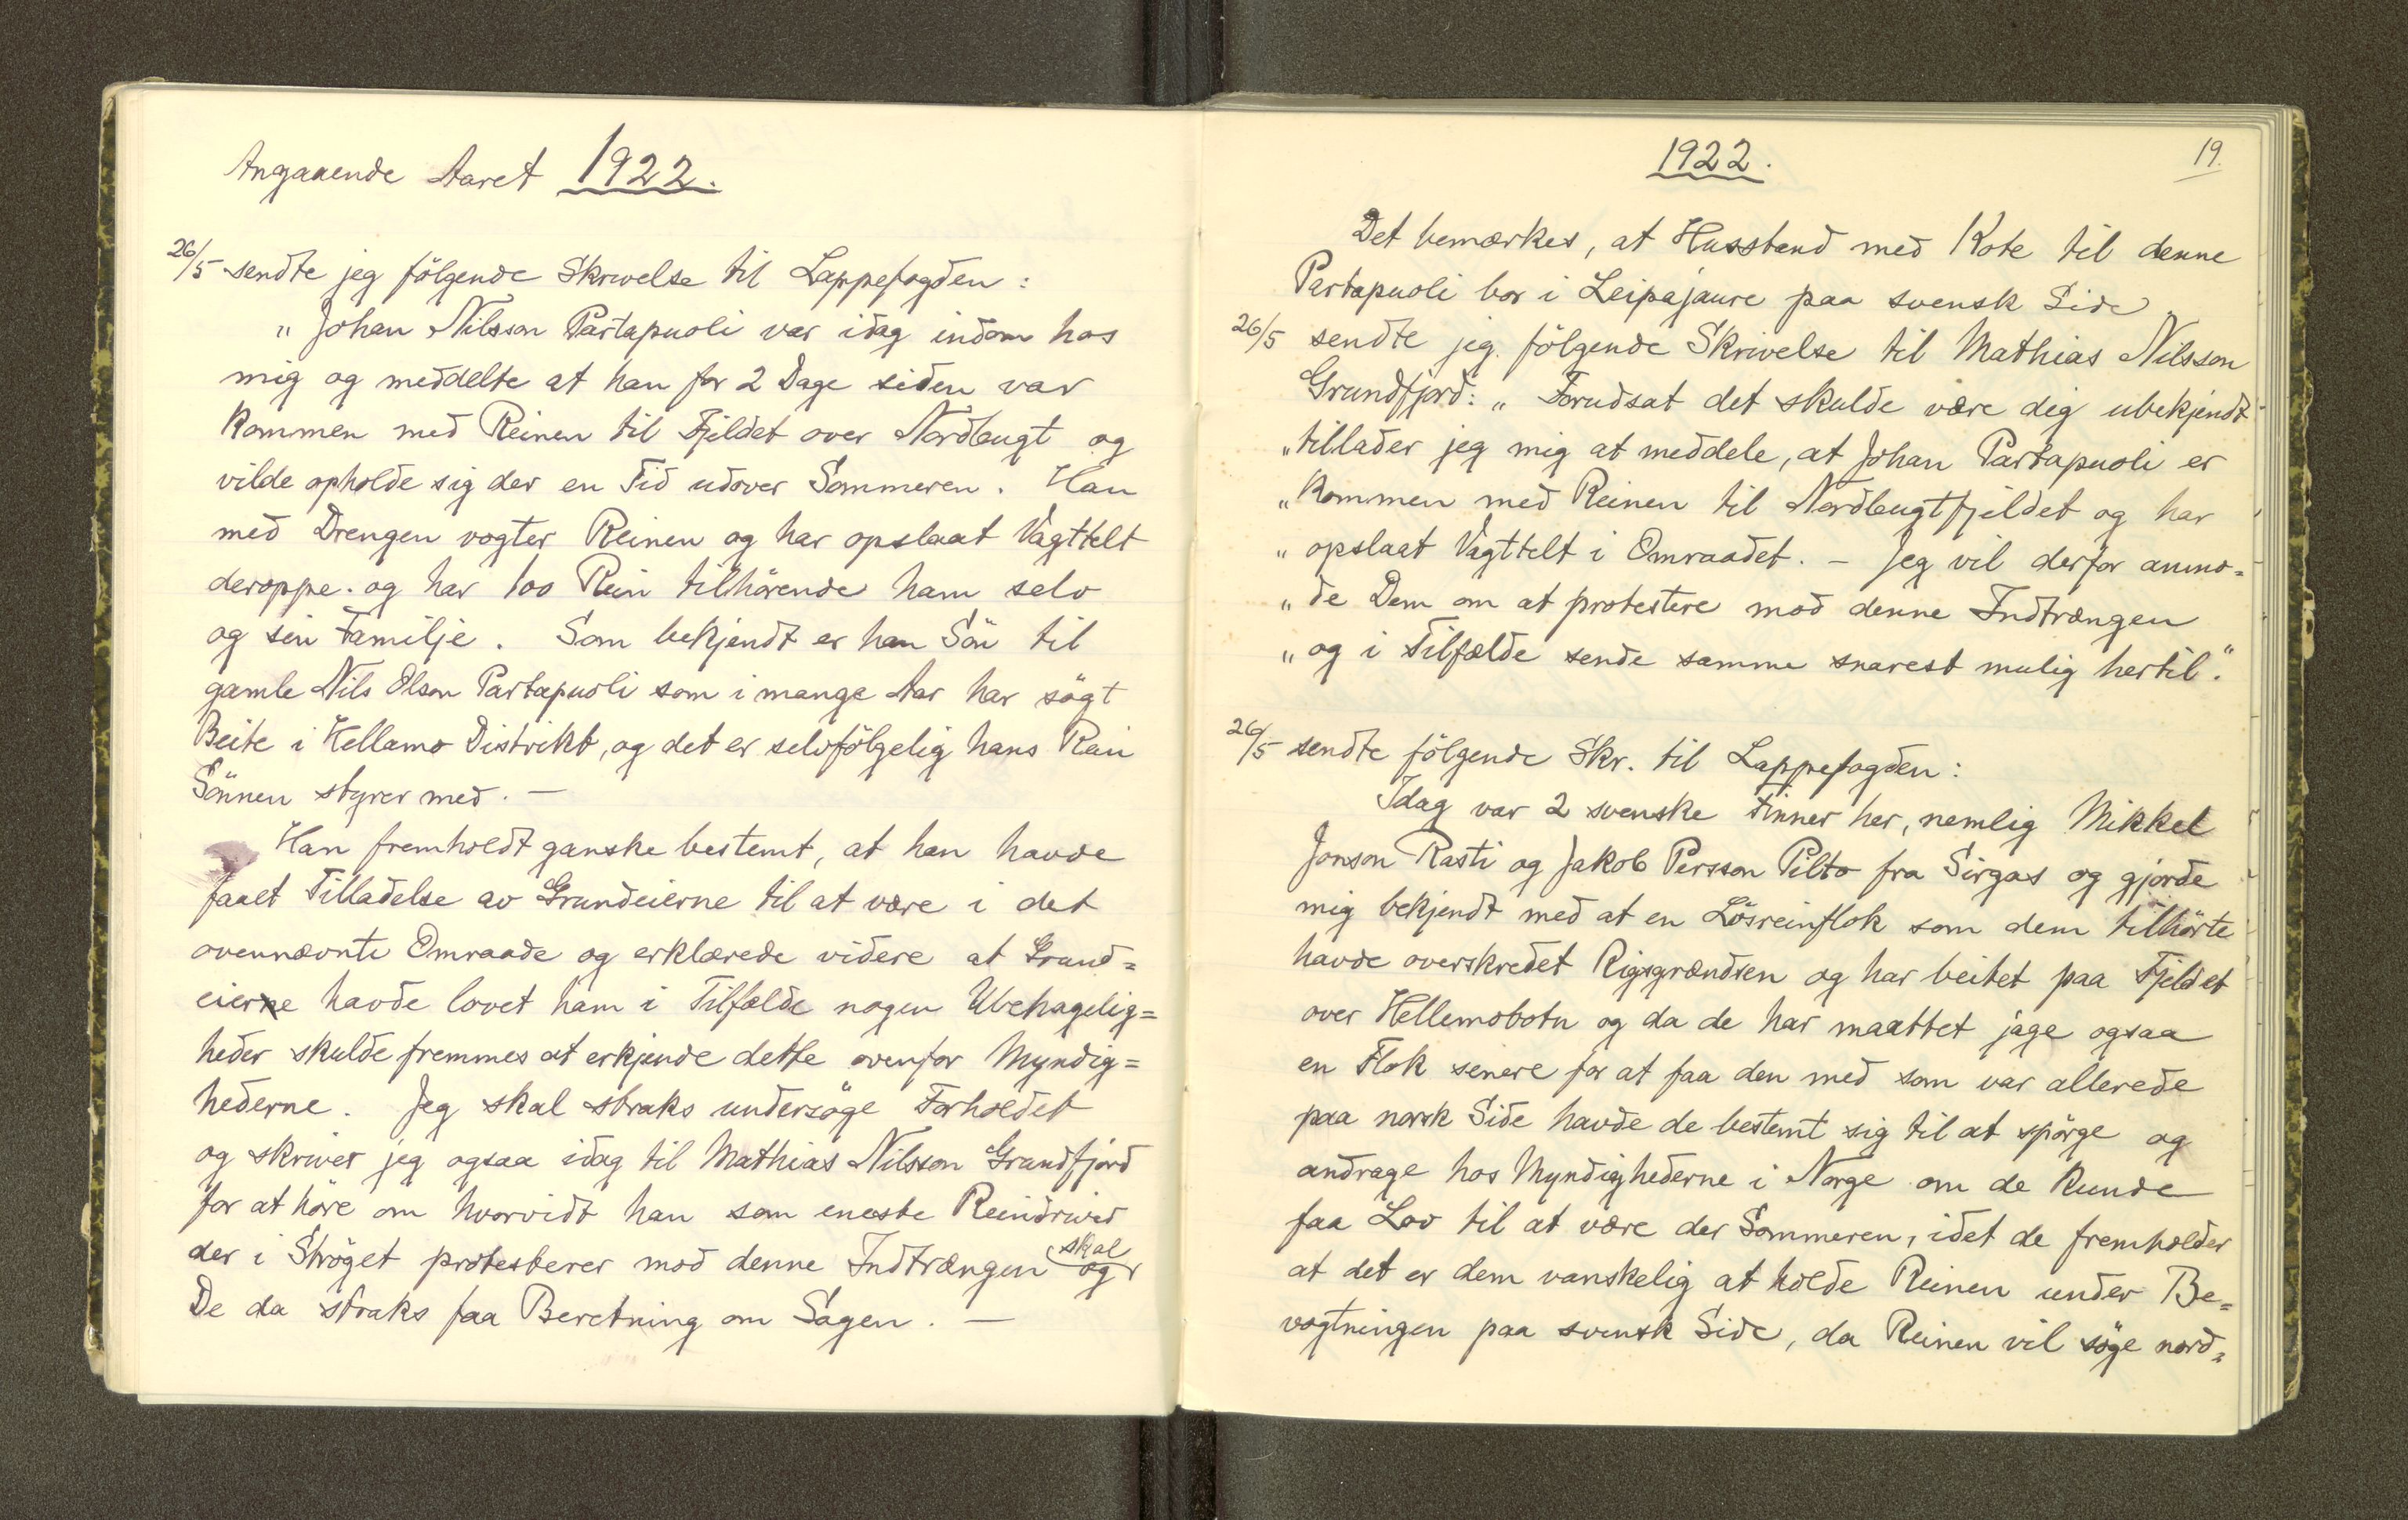 Angaaende Aaret 1922.
26/5 sendte jeg følgende Skrivelse til Lappefogden:
" Johan Nilsson Partapuoli var idag indom hos
mig og meddelte at han for 2 Dage siden var
kommen med Reinen til Fjeldet over Nordbugt og
vilde opholde sig der en Tid udover Sommeren. Han
med Drengen vogter Reinen og har opslaat Vagttelt
deroppe. og har 100 Rein tilhörende ham selv
og sin Familje. Som bekjendt er han Sön til
gamle Nils Olson Partapuoli som i mange Aar har sögt
Beite i Hellamo Distrikt, og det er selvfölgelig hans Rein
Sönnen styrer med. —
Han fremholdt ganske bestemt, at han havde
faaet Tilladelse av Grundeierne til at være i det
ovennævnte Omraade og erklærede videre at Grund=
eierne havde lovet ham i Tilfælde nogen Ubehagelig=
heder skulde fremmes at erkjende dette ovenfor Myndig=
hederne. Jeg skal straks undersöge Forholdet
og skriver jeg ogsaa idag til Mathias Nilsson Grundfjord
for at höre om hvorvidt han som eneste Reindriver
der i Ströget protesterer mod denne Indtrængen og skal
De da straks faa Beretning om Sagen. —
1922.
19.
Det bemærkes, at Husstand med Kote til denne
Partapuoli bor i Leipajaure paa svensk Side
26/5 sendte jeg fölgende Skrivelse til Mathias Nilsson
Grundfjord: " Forudsat det skulde være dig ubekjendt
" tillader jeg mig at meddele, at Johan Partapuoli er
" kommen med Reinen til Nordbugtfjeldet og har
" opslaat Vagttelt i Omraadet. — Jeg vil derfor anmo=
" de Dem om at protestere mod denne Indtrængen
" og i Tilfælde sende samme snarest mulig hertil."
26/5 sendte fölgende Skr. til Lappefogden:
Idag var 2 svenske Finner her, nemlig Mikkel
Jonson Rasti og Jakob Persson Pilto fra Sirgas og gjorde
mig bekjendt med at en Lösreinflok som dem tilhörte
havde overskredet Rigsgrændsen og har beitet paa Fjeldet
over Hellemobotn og da de har maattet jage ogsaa
en Flok senere for at faa den med som var allerede
paa norsk Side havde de bestemt sig til at spörge og
andrage hos Myndighederne i Norge om de kunde
faa Lov til at være der Sommeren, idet de fremholder
at det er dem vanskelig at holde Reinen under Be=
vogtningen paa svensk Side, da Reinen vil söge nord=